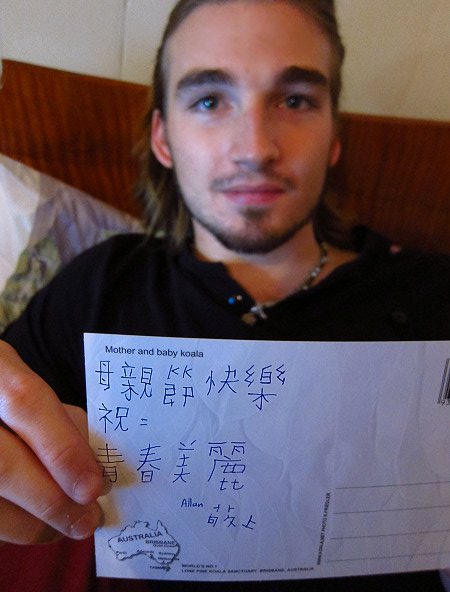 Mother and baby koala
母親節快樂
祝=
青春美麗
Allan 敬上
AUSTRALIA
BRISBANE
Perth Adelaide Sydney
Melbourne
TASMANIA
WORLD'S NO 1
LONE PINE KOALA SANCTUARY BRISBANE, AUSTRALIA